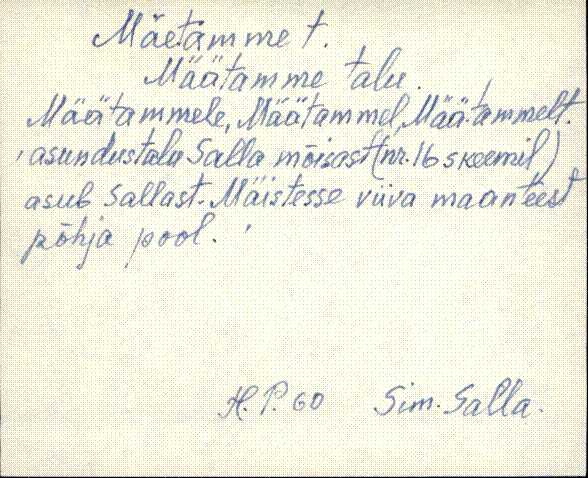 Mäetamme t.
Määtamme talu.
Määtammele, Määtammel, Määtammelt.
asundustalu Salla mõisast (nr. 16 skeemil)
asub Sallast-Mäistesse viiva maanteest
põhja pool.
H. P. 60 Sim. Salla.